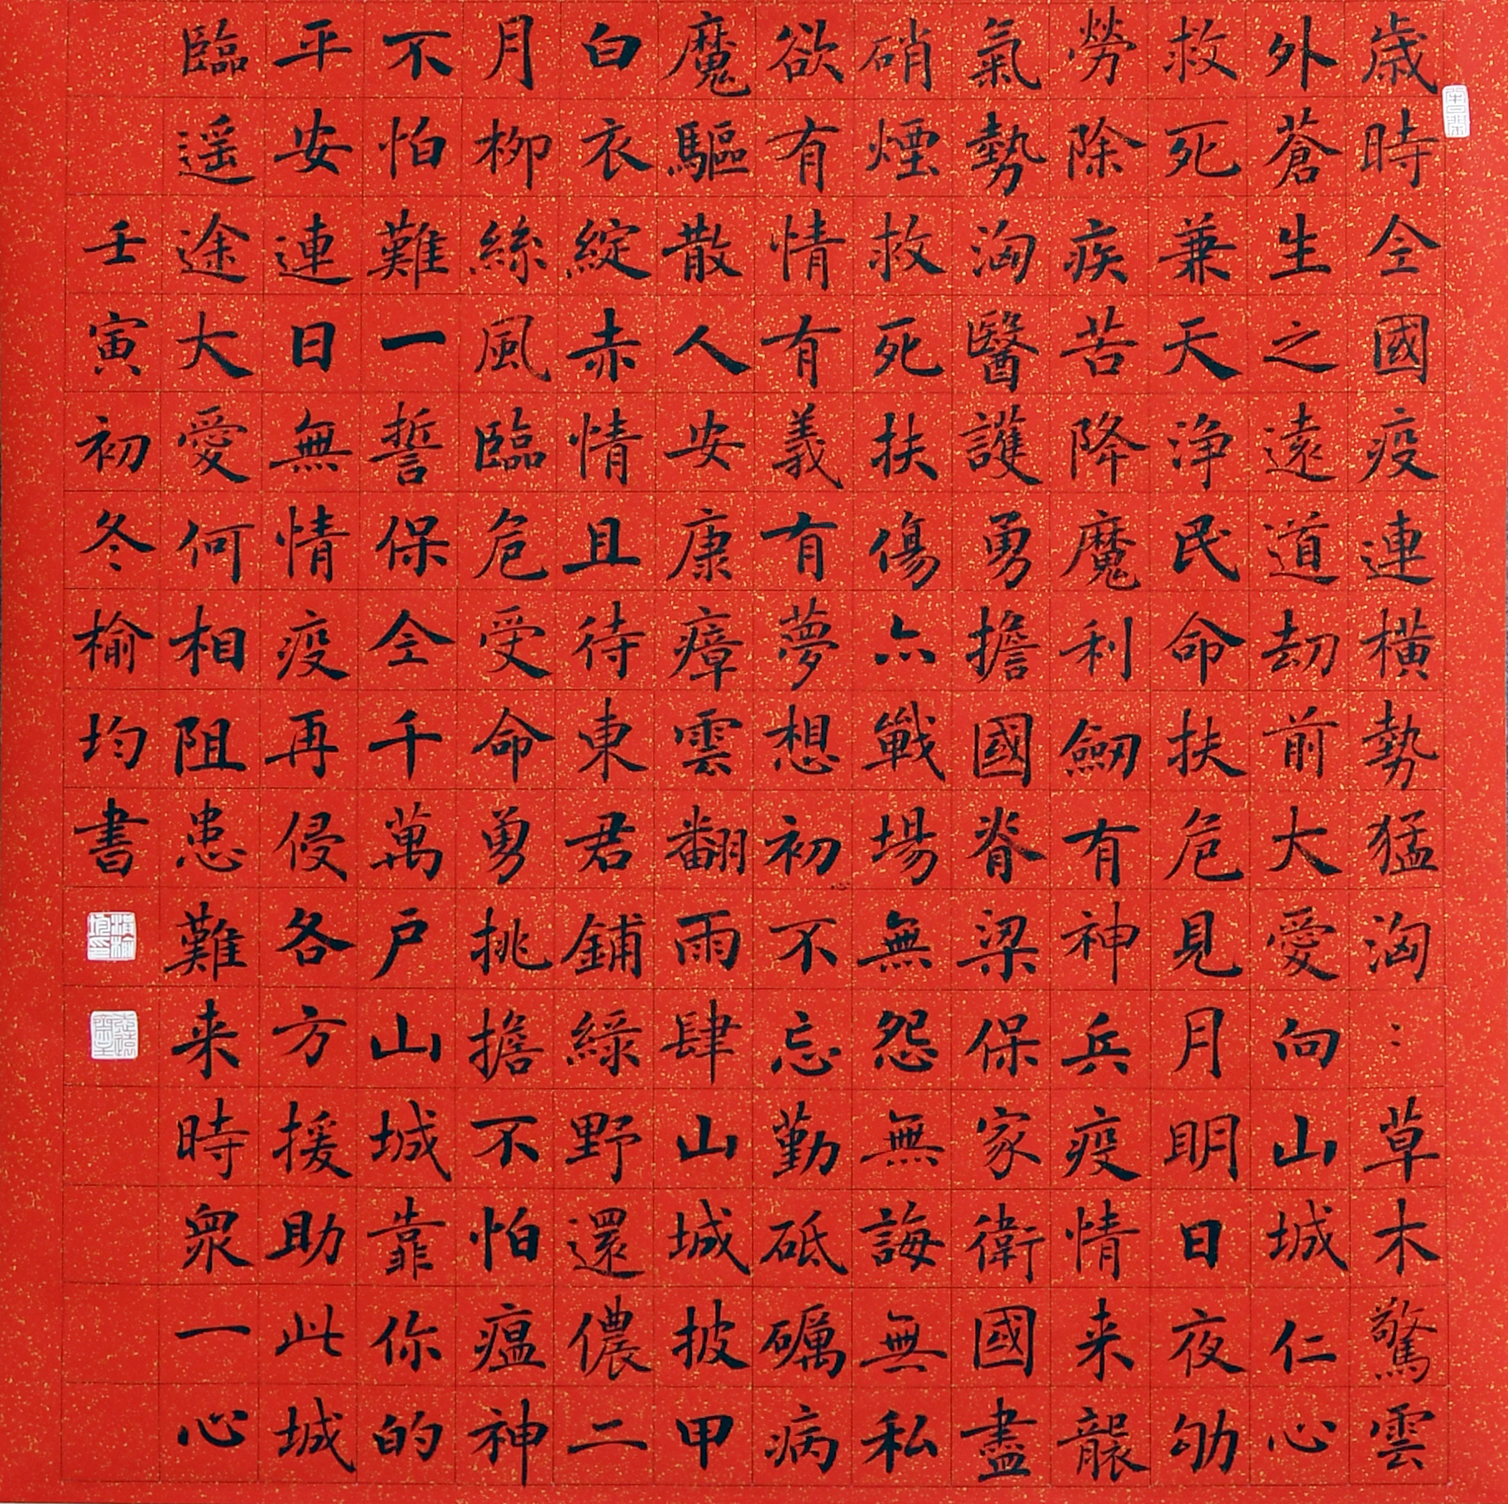 歲時全國疫連橫勢猛洶⺀草木驚雲
外蒼生之遠道劫前大愛向山城仁心
救死兼天淨民命扶危見月明日夜劬
勞除疾苦降魔利劒有神兵疫情来襲
氣勢洶醫護勇擔國脊梁保家衛國盡
硝煙救死扶傷亦戰場無怨無誨無私
欲有情有義有夢想初不忘勤砥礪病
魔驅散人安康瘴雲翻雨肆山城披甲
白衣綻赤情且待東君鋪綠野還儂二
月柳絲風臨危受命勇挑擔不怕瘟神
不怕難一誓保全千萬户山城靠你的
平安連日無情疫再侵各方援助此城
臨遥途大愛何相阻患難来時衆一心
壬寅初冬榆均書